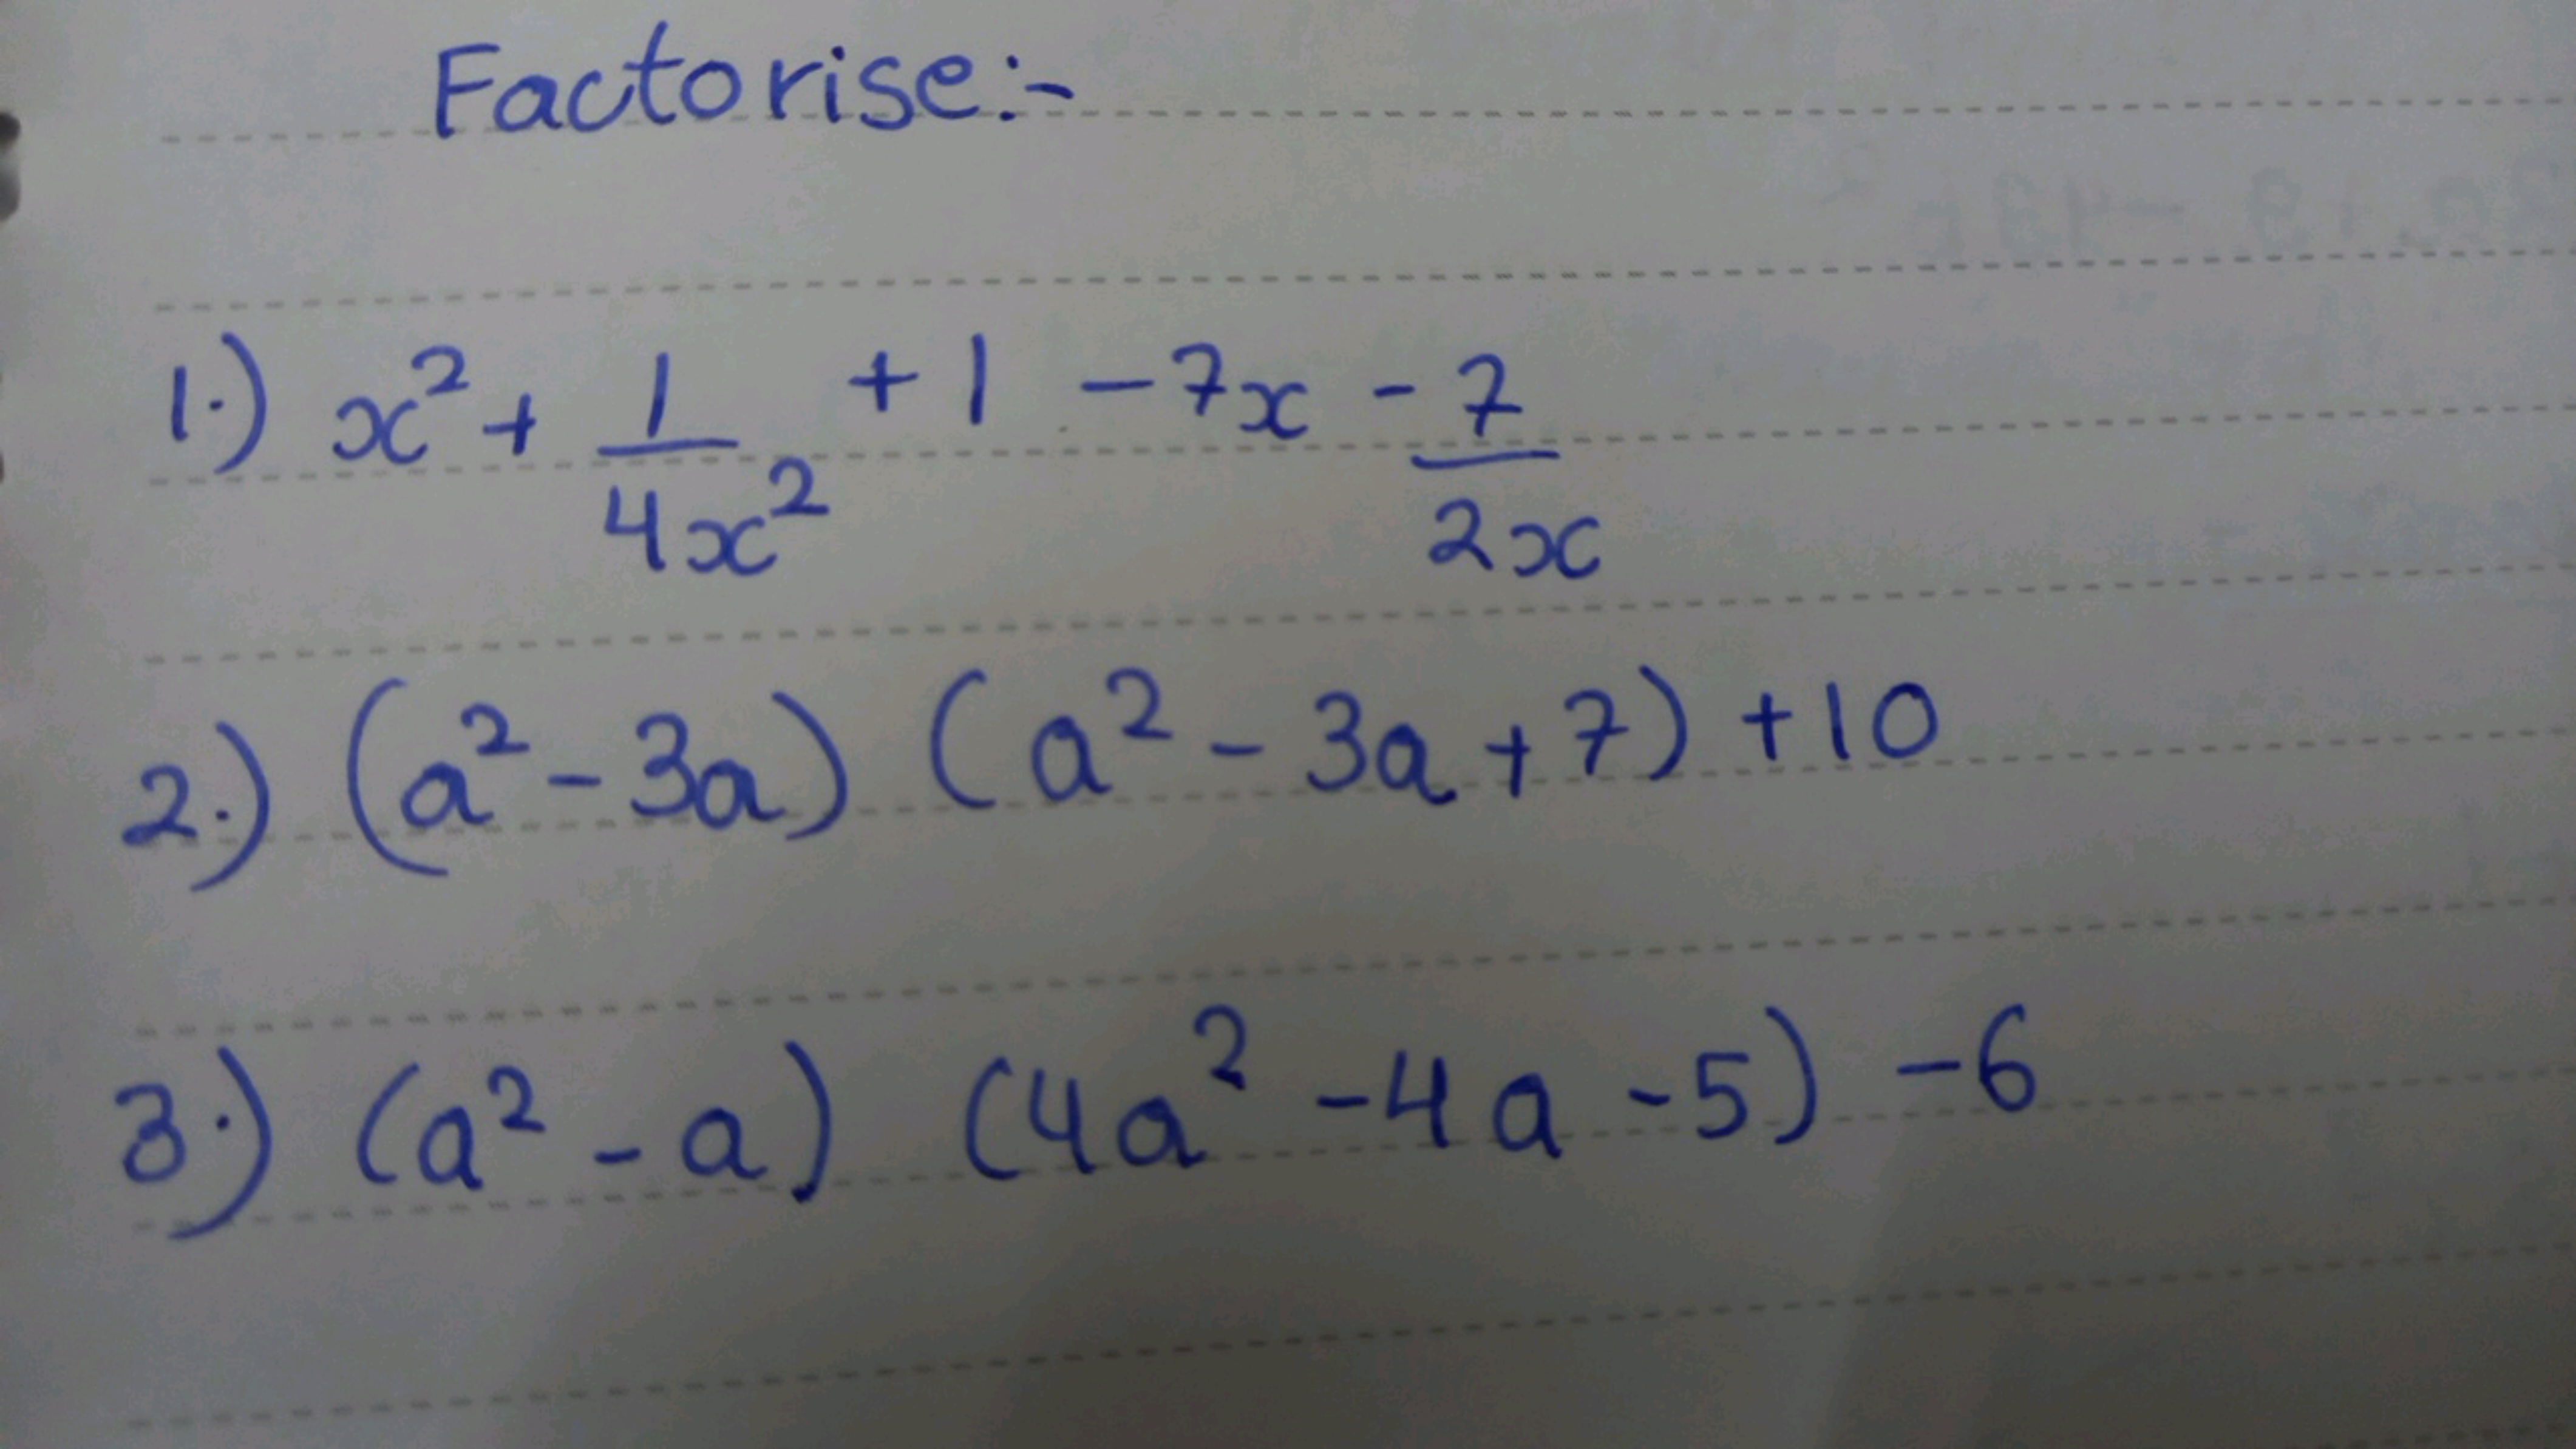 Factorise:-
1.) x² + 1/4x² + 1 - 7x - 7/2x
2.) (a² - 3a) (a² - 3a + 7) + 10
3.) (a² - a) (4a² - 4a - 5) - 6